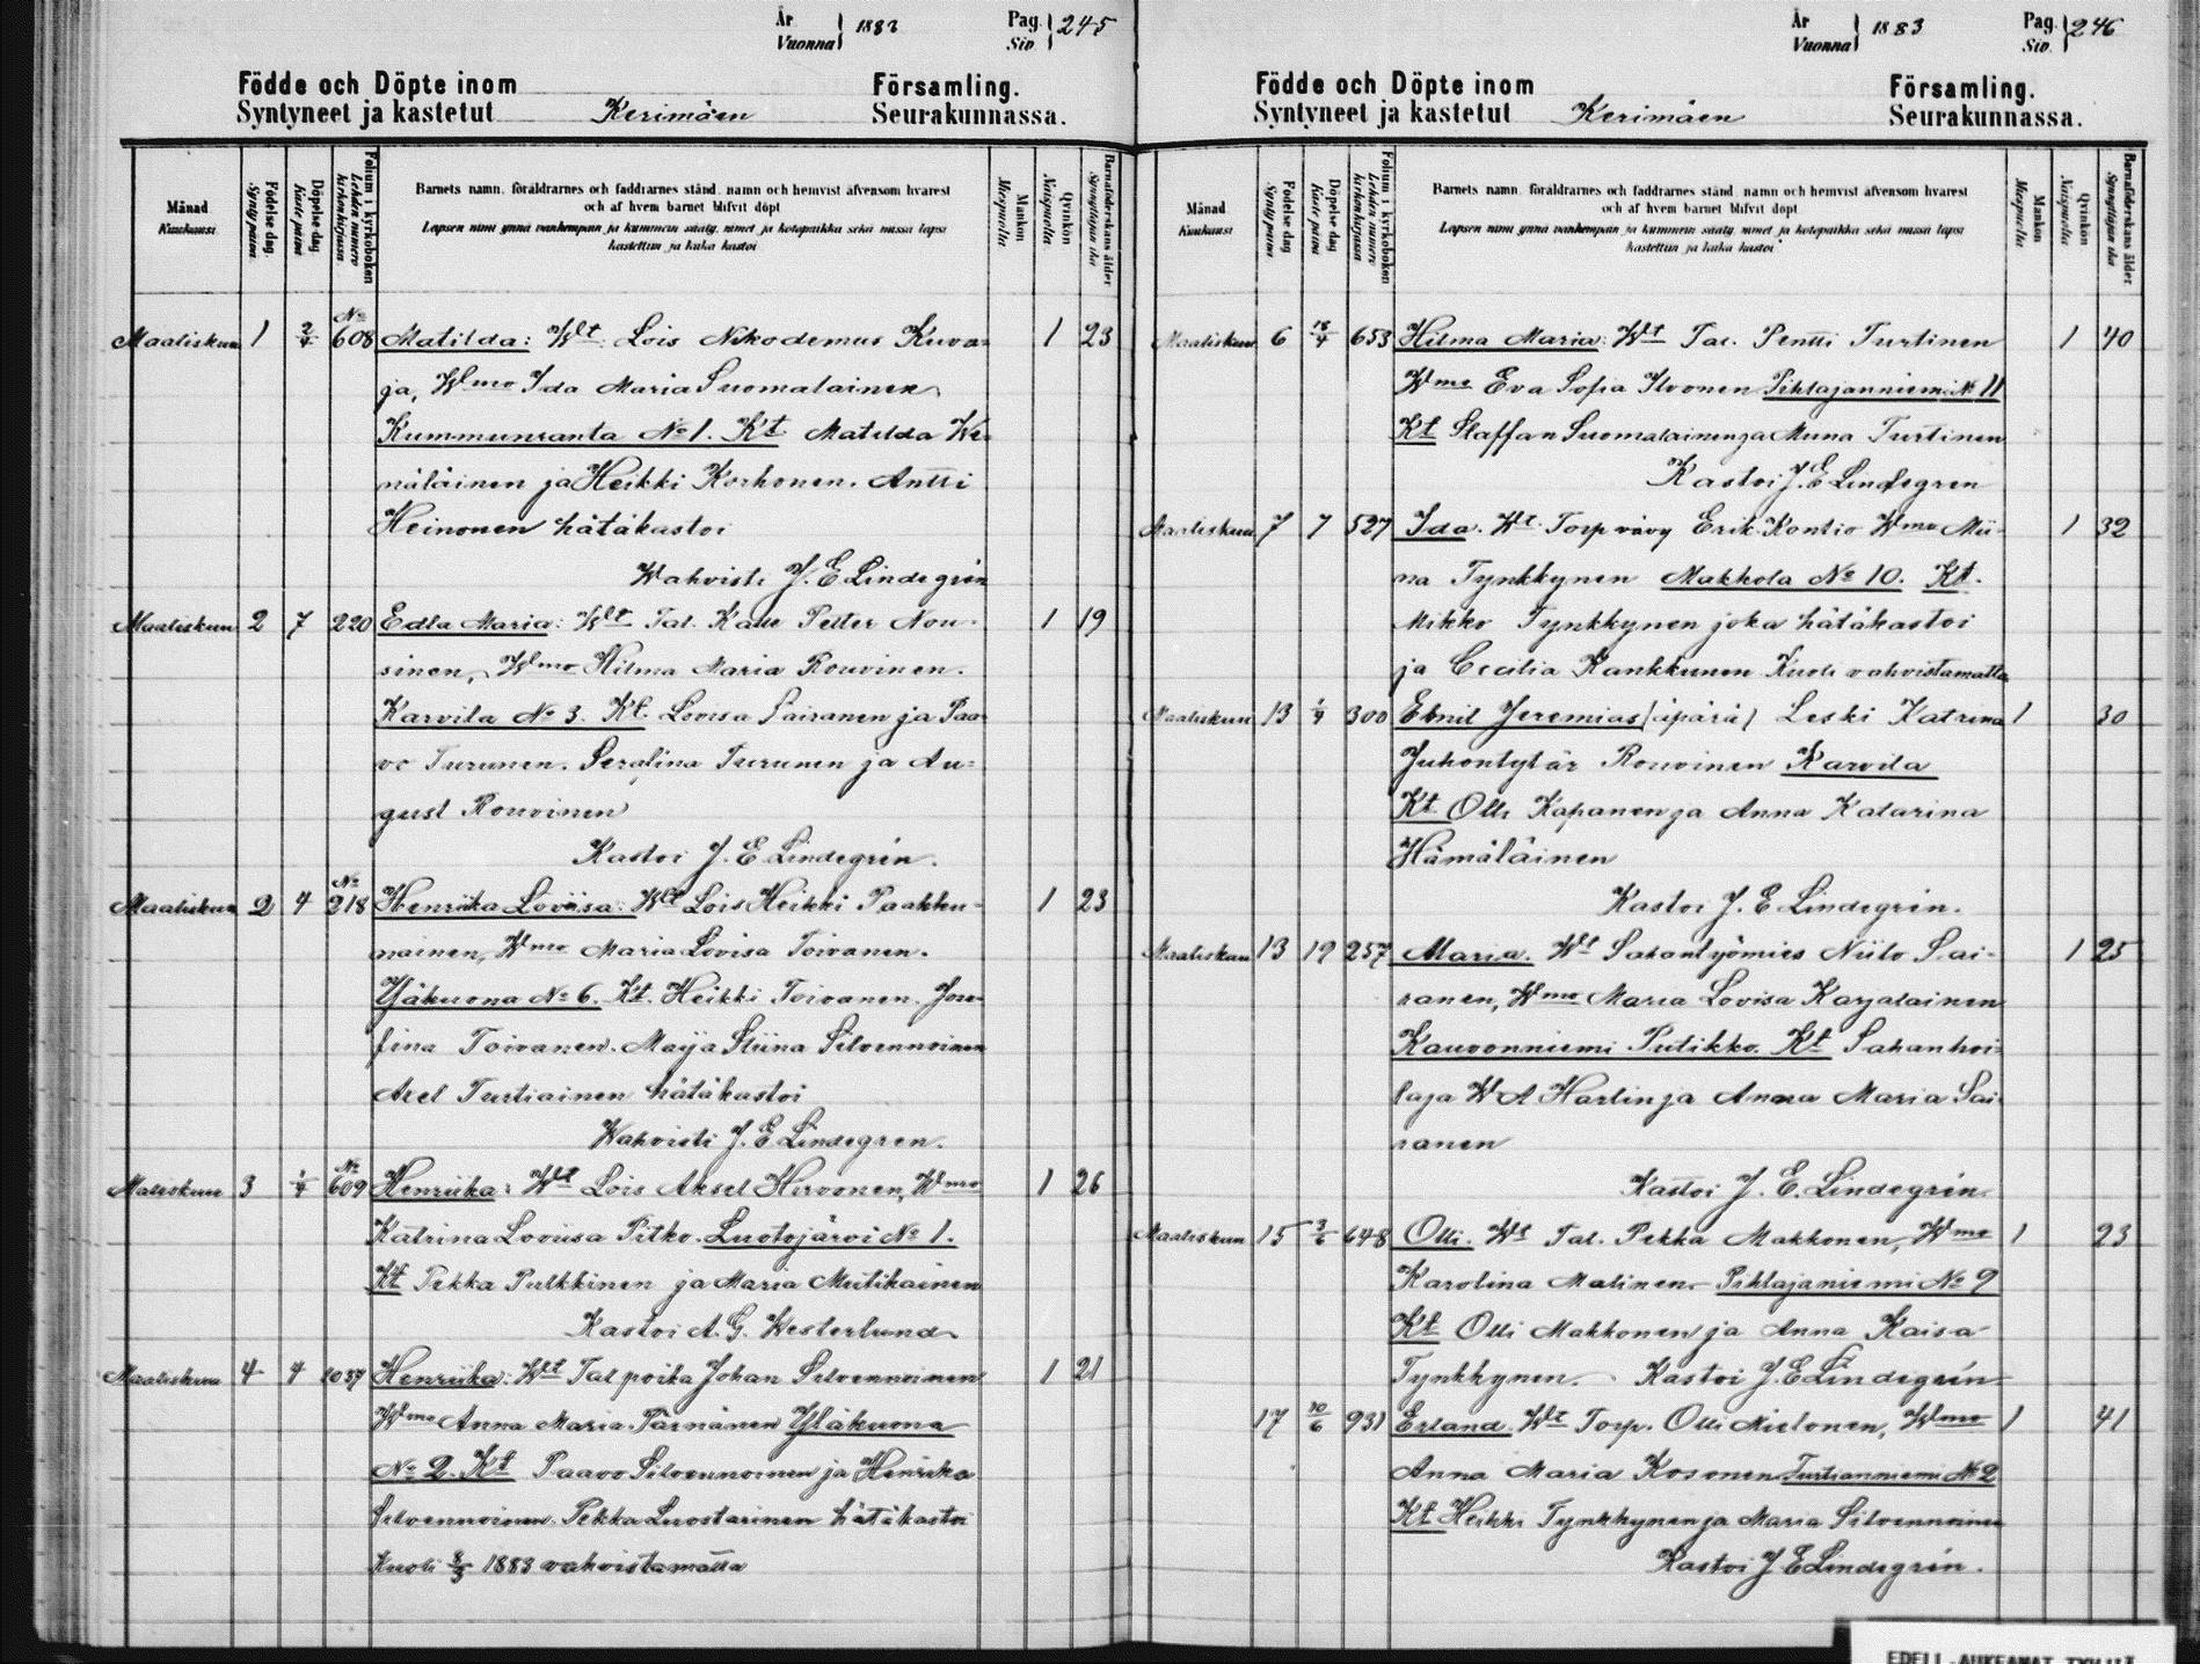 År
Vuonna 1883
Pag.
Siv. 245
Födde och Döpte inom
Syntyneet ja kastetut Kerimäen
Församling.
Seurakunnassa.
Månad
Kuukausi
Födelse dag
Synty päivä
Döpelse dag
Kaste päivä
Folium i kyrkoboken
Lehden numero kirkonkirjassa
Barnets namn, föräldrarnes och faddrarnes stånd, namn och hemvist äfvensom hvarest
och af hvem barnet blifvit döpt
Lapsen nimi ynnä vanhempain ja kummein sääty, nimet ja kotopaikka sekä missä lapsi
kastettiin ja kuka kastoi
Mankön
Miespuolia
Qvinkön
Naispuolia
Barnaföderskans ålder
Synnyttäjän ikä
Maaliskuu 1 2/4 No 608 Matilda: Wlt: Lois Nikodemus Kuva= 1 23
ja, Wlmo Ida Maria Suomalainen
Kummunranta No 1. Kt Matilda We=
näläinen ja Heikki Korhonen. Antti
Heinonen hätäkastoi
Wahvisti J. E Lindegrén
Maaliskuu 2 7 220 Edla Maria: Wlt Tal. Kalle Petter Nou= 1 19
sinen, Wlmo Hilma Maria Rouvinen.
Karvila No 3. Kt. Lovisa Sairanen ja Paa=
vo Turunen. Serafina Turunen ja Au=
gust Rouvinen
Kastoi J. E Lindegrén.
Maaliskuu 2 4 No 218 Henriika Loviisa: Wlt Lois Heikki Paakku= 1 23
nainen, Wlmo Maria Lovisa Toivanen.
Yläkuona No 6. Kt. Heikki Toivanen. Jose=
fina Toivanen. Maija Stiina Silvennoinen
Axel Turtiainen hätäkastoi
Wahvisti J. E Lindegren.
Maliskuu 3 1/4 No 609 Henriika: Wlt Lois Aksel Hirvonen, Wlmo 1 26
Katrina Loviisa Pitko. Luotojärvi No 1.
Kt Pekka Pulkkinen ja Maria Mutikainen
Kastoi A. G. Westerlund
Maaliskuu 4 4 1037 Henriika: Wlt Tal poika Johan Silvennoinen 1 21
Wlmo Anna Maria Pärnänen Yläkuona
No 2. Kt Paavo Silvennoinen ja Henrika
Silvennoinen. Pekka Luostarinen hätäkastoi
Kuoli 8/3 1883 vahvistamatta
År
Vuonna 1883
Pag.
Siv. 246
Födde och Döpte inom
Syntyneet ja kastetut Kerimäen
Församling.
Seurakunnassa.
Månad
Kuukausi
Födelse dag
Synty päivä
Döpelse dag
Kaste päivä
Folium i kyrkoboken
Lehden numero kirkonkirjassa
Barnets namn, föräldrarnes och faddrarnes stånd, namn och hemvist äfvensom hvarest
och af hvem barnet blifvit döpt
Lapsen nimi ynnä vanhempain ja kummein sääty, nimet ja kotopaikka sekä missä lapsi
kastettiin ja kuka kastoi
Mankön
Miespuolia
Qvinkön
Naispuolia
Barnaföderskans ålder
Synnyttäjän ikä
Maaliskuu 6 18/4 653 Hilma Maria: Wt Tal. Pentti Turtinen 1 40
Wmo Eva Sofia Ilvonen Pihlajanniemi No 11
Kt Staffan Suomalainen ja Miina Turtinen
Kastoi J. E Lindegren
Maaliskuu 7 7 527 Ida. Wt. Torp vävy Erik Kontio Wmo Mii= 1 32
na Tynkkynen Makkola No 10. Kt.
Mikko Tynkkynen joka hätäkastoi
ja Cecilia Kankkunen Kuoli vahvistamatta
Maaliskuu 13 1/4 300 Emil Jeremias (äpärä) Leski Katrina 1 30
Juhontytär Rouvinen Karvila
Kt Olli Kapanen ja Anna Katarina
Hämäläinen
Kastoi J. E Lindegrén.
Maaliskuu 13 19 257 Maria. Wt Sahantyömies Niilo Sai= 1 25
ranen, Wmo Maria Lovisa Karjalainen
Kauvonniemi Putikko. Kt Sahanhoi=
taja W A Harlin ja Anna Maria Sai=
ranen
Kastoi J. E. Lindegrén.
Maaliskuu 15 3/6 648 Olli. Wt Tal. Pekka Makkonen, Wmo 1 23
Karolina Malinen. Pihlajaniemi No 9
Kt Olli Makkonen ja Anna Kaisa
Tynkkynen. Kastoi J. E Lindegrén
17 10/6 931 Erland. Wt Torp. Olli Mielonen, Wlmo 1 41
Anna Maria Kosonen Turtianniemi No 2
Kt Heikki Tynkkynen ja Maria Silvennoinen
Kastoi J E Lindegrén.